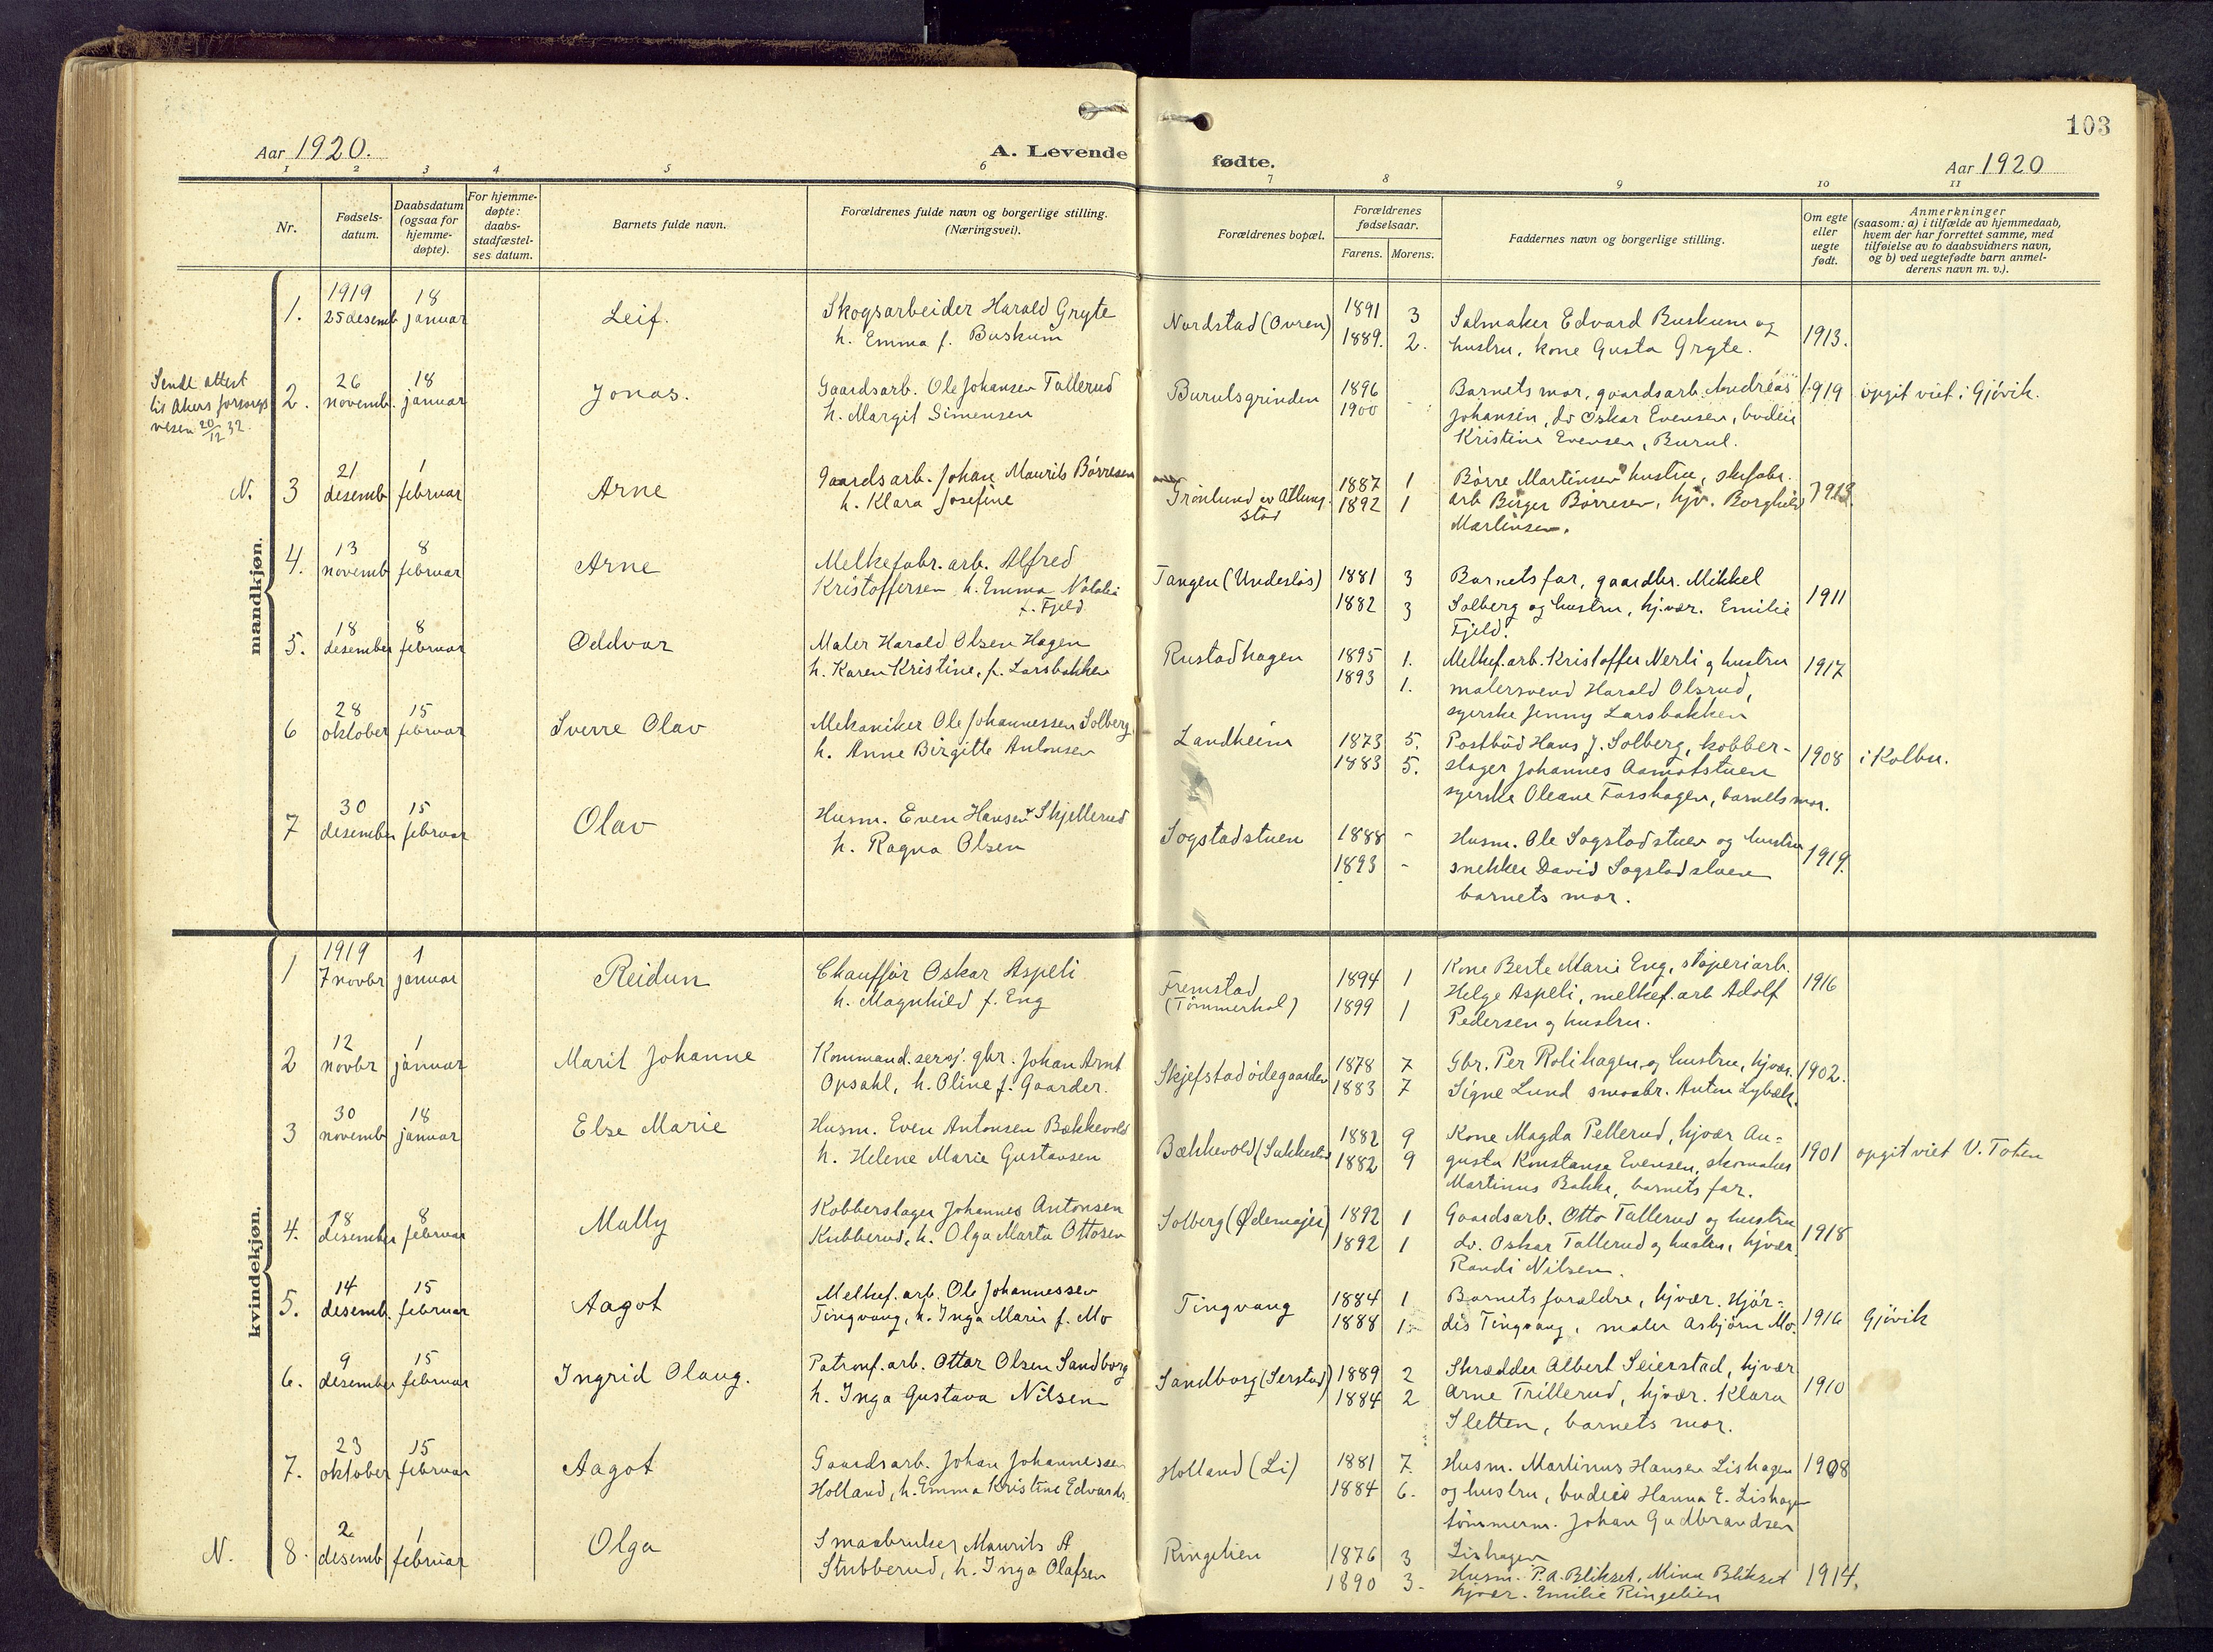 103
Aar 1920.
A. Levende fødte.
Aar 1920
1 2 3 4 5 6 7 8 9 10 11
Nr.
Fødsels-
datum.
Daabsdatum
(ogsaa for
hjemme-
døpte).
For hjemme-
døpte:
daabs-
stadfæstel-
ses datum.
Barnets fulde navn.
Forældrenes fulde navn og borgerlige stilling.
(Næringsvei).
Forældrenes bopæl.
Forældrenes
fødselsaar.
Farens. Morens.
Faddernes navn og borgerlige stilling.
Om egte
eller
uegte
født.
Anmerkninger
(saasom: a) i tilfælde av hjemmedaab,
hvem der har forrettet samme, med
tilføielse av to daabsvidners navn,
og b) ved uegtefødte barn anmel-
derens navn m. v.).
mandkjøn.
1. 1919 25 desemb 18 januar Leif. Skogsarbeider Harald Gryte
h. Emma f. Buskum
Nordstad (Ovren) 1891 3
1889. 2.
Salmaker Edvard Buskum og
hustru, kone Gusta Gryte.
1913.
Sendt attest
til Akers forsorgs
vesen 20/12 32.
2. 26 novemb. 18 januar Jonas. Gaardsarb. Ole Johansen Tallerud
h. Margit Simensen
Burulsgrinden 1896
1900
Barnets mor, gaardsarb. Andreas
Johansen, do Oskar Evensen, budeie
Kristine Evensen, Burul.
1919 opgit viet i Gjövik.
N. 3 21 desemb 1 februar Arne Gaardsarb. Johan Maurits Börresen
h. Klara Josefine
Grönlund 1887 1
1892 1
Börre Martinsen hustru,
arb Birger Börresen, hjv. Borghild
Martinsen.
4. 13 novemb 8 februar Arne Melkefabr. arb. Alfred
Kristoffersen, h. Emma Natalie
f. Fjeld
Tangen (Undeslös) 1881 3
1882 3
Barnets far, gaardbr. Mikkel
Solberg og hustru, hj.vær. Emilie
Fjeld.
1911
5. 18 desember 8 februar Oddvar Maler Harald Olsen Hagen
h. Karen Kristine, f. Larsbakken
Rustadhagen 1895 1.
1893 1.
Melkef. arb. Kristoffer Nerli og hustru
malersvend Harald Olsrud,
syerske Jenny Larsbakken
1917
6 28 oktober 15 februar Sverre Olav Mekaniker Ole Johannessen Solberg,
h. Anne Birgitte Antonsen
Landheim 1873 5.
1883 5.
Postbud Hans J. Solberg, kobber-
slager Johannes Aamotstuen
syerske Oleane Fosshagen, barnets mor.
1908 i Kolbu.
7 30 desember 15 februar Olav Husm. Even Hansen Skjellerud
h. Ragna Olsen
Sogstadstuen 1888 -
1893 -
Husm. Ole Sogstadstuen og hustru
snekker David Sogstadstuen
barnets mor.
1919.
kvindekjøn.
1 1919 7 novbr 1 januar Reidun Chaufför Oskar Aspeli
h. Magnhild f. Eng
Fremstad
(Tömmerhol)
1894 1
1899 1
Kone Berte Marie Eng, stöperiarb.
Helge Aspeli, melkef. arb Adolf
Pedersen og hustru.
1916
2 12 novbr 1 januar Marit Johanne Kommand. sersj. gbr. Johan Arnt
Opsahl, h. Oline f. Gaarder.
Skjefstadödegaarden 1878 7
1883 7
Gbr. Per Rolihagen og hustru, hjvær.
Signe Lund smaabr. Anten Lybæk.
1902.
3 30 novemb 18 januar Else Marie Husm. Even Antonsen Bækkevold
h. Helene Marie Gustavsen
Bækkevold 1882 9
1882 9
Kone Magda Pellerud, hjvær Au-
gusta Konstanse Evensen, skomaker
Martinus Bakke, barnets far.
1901 opgit viet V. Toten
4. 18 desember 8 februar Mally Kobberslager Johannes Antonsen
Kubberud, h. Olga Marta Ottosen
Solberg (Ødemajer) 1892 1
1892 1
Gaardsarb. Otto Tallerud og hustru
do. Oskar Tallerud og hustru, hjvær.
Randi Nilsen.
1918
5. 14 desemb. 15 februar Aagot Melkef. arb. Ole Johannessen
Tingvang, h. Inga Marie f. Mo
Tingvang 1884 1
1888 1
Barnets forældre, hjvær. Hjör-
dis Tingvang, maler Asbjörn Mo.
1916 Gjövik
6. 9 desember 15 februar Ingrid Olaug. Patronf. arb. Ottar Olsen Sandborg
h. Inga Gustava Nilsen
Sandborg (Serstad) 1889 2
1884 2
Skrædder Albert Seierstad, hjvær
Arne Trillerud, hjvær. Klara
Sletten, barnets mor.
1910
7. 23 oktober 15 februar Aagot Gaardsarb. Johan Johannessen
Holland, h. Emma Kristine Edvards.
Holland (Li) 1881 7
1884 6.
Husm. Martinus Hansen Lishagen
og hustru, budeie Hanna E. Lishagen
tömmerm. Johan Gudbrandsen
Lishagen
1908
N. 8. 2 desemb 1 februar Olga Smaabruker Maurits A
Stubberud, h. Inga Olafsen
Ringelien 1876 3
1890 3-
Husm. P.A. Blikset, Mina Blikset
hjvær. Emilie Ringelien
1914.